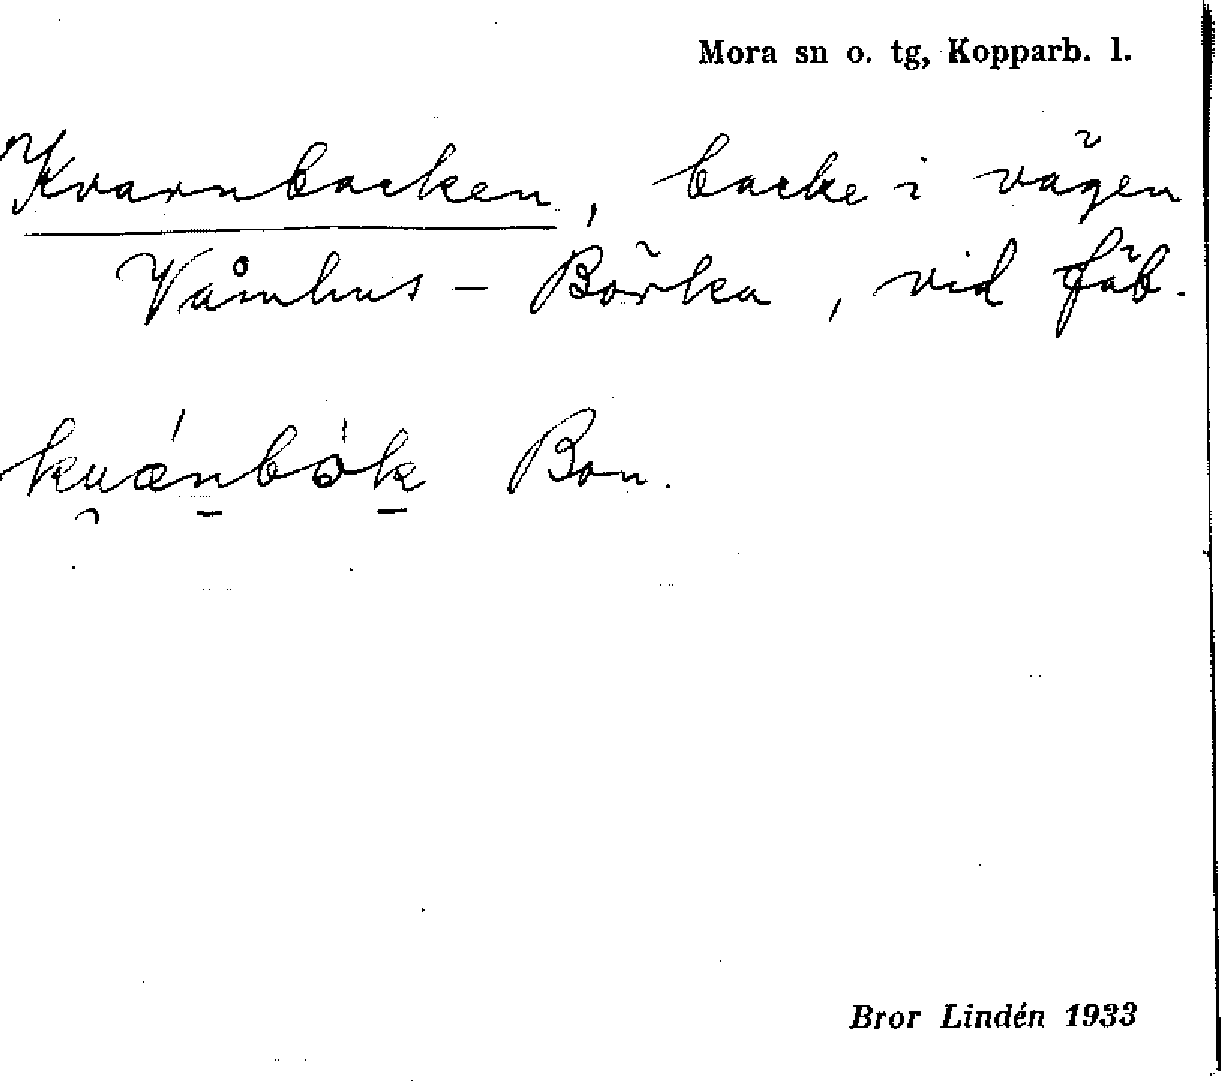 Mora sn o. tg, Kopparb. l.
Kvarnbacken, backe i vägen
Våmhus – Börka, vid fäb.
Bon.
Bror Lindén 1933